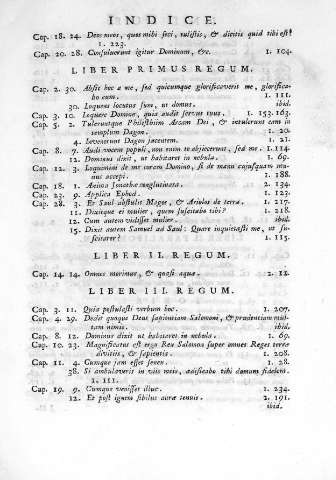 INDICE.
Cap. 18. 24. Deus meus, quos mihi soci, tulistis, & dicitis quid tibi est?
1. 223.
Cap. 20. 28. Consuluerunt igitur Dominum, &c. 1. 104.
LIBER PRIMUS REGUM.
Cap. 2. 30. Absit hoc a me, sed quicumque glorificaverit me, glorificabo eum. 1. 111.
30. Loquens locutus sum, ut domus. ibid.
Cap. 3. 10. Loquere Domine, quia audit servus tuus. 1. 153. 163.
Cap. 5. 2. Tuleruntque Philisthiim Arcam Dei, & intulerunt eam in
templum Dagon. 1. 20.
4. Levaverunt Dagon jacentem. 1. 21.
Cap. 8. 7. Audi vocem populi, non enim te abjecerunt, sed me. 1. 114.
12. Dominus dixit, ut habitaret in nebula. 1. 69.
Cap. 12. 3. Loquimini de me coram Domino, si de manu cujusquam munus accepi.
1. 188.
Cap. 18. 1. Anima Jonathæ conglutinata. 2. 134.
Cap. 23. 9. Applica Ephod. 1. 123.
Cap. 28. 3. Et Saul abstulit Magos, & Ariolos de terra. 1. 217.
11. Dixitque ei mulier, quem suscitabo tibi? 1. 218.
12. Cum autem vidisset mulier. ibid.
15. Dixit autem Samuel ad Saul: Quare inquietasti me, ut suscitarer?
1. 115.
LIBER II. REGUM.
Cap. 14. 14. Omnes morimur, & quasi aqua. 2. 12.
LIBER III. REGUM.
Cap. 3. 11. Quia postulasti verbum hoc. 1. 207.
Cap. 4. 29. Dedit quoque Deus sapientiam Salomoni, & prudentiam multam nimis.
ibid.
Cap. 8. 12. Dominus dixit ut habitaret in nebula. 1. 69.
Cap. 10. 23. Magnificatus est ergo Rex Salomon super omnes Reges terræ
divitiis, & sapientia. 1. 208.
Cap. 11. 4. Cumque jam esset senex. 1. 28.
38. Si ambulaveris in viis meis, ædificabo tibi domum fidelem.
1. 111.
Cap. 19. 9. Cumque venisset illuc. 1. 234.
12. Et post ignem sibilus auræ tenuis. 2. 191.
ibid.